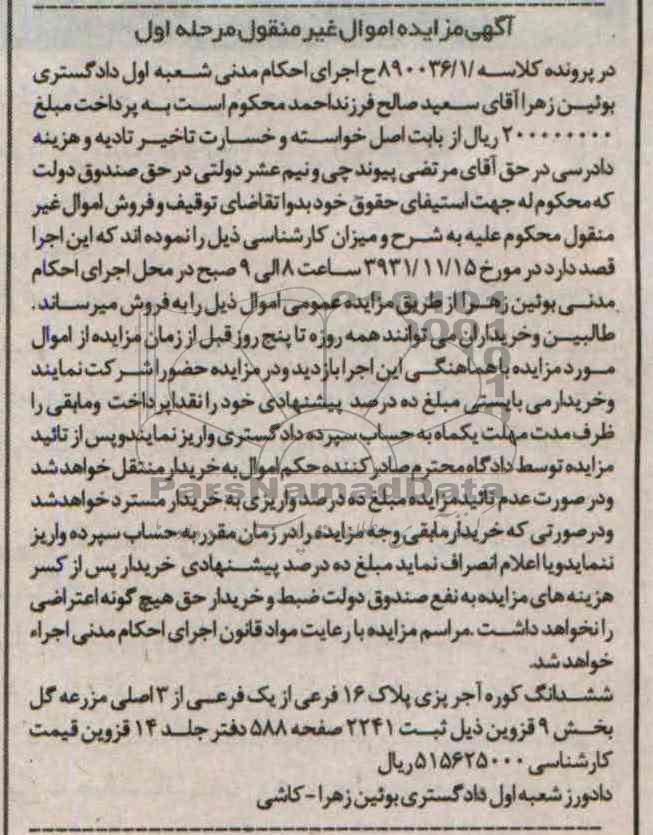 آگهی مزایده اموال غیر منقول مرحله اول
در پرونده کلاسه /۸۹۰۰۳۶/۱ ح اجرای احکام مدنی شعبه اول دادگستری
بوئین زهرا آقای سعید صالح فرزند احمد محکوم است به پرداخت مبلغ
۲۰۰۰۰۰۰۰۰ ریال از بابت اصل خواسته و خسارت تاخیر تادیه و هزینه
دادرسی در حق آقای مرتضی پیوندچی و نیم عشر دولتی در حق صندوق دولت
که محکوم له جهت استیفای حقوق خود بدوا تقاضای توقیف و فروش اموال غیر
منقول محکوم علیه به شرح و میزان کارشناسی ذیل را نموده اند که این اجرا
قصد دارد در مورخ ۳۹۳۱/۱۱/۱۵ ساعت ۸ الی ۹ صبح در محل اجرای احکام
مدنی بوئین زهرا از طریق مزایده عمومی اموال ذیل را به فروش میرساند.
طالبین و خریداران می توانند همه روزه تا پنج روز قبل از زمان مزایده از اموال
مورد مزایده با هماهنگی این اجرا بازدید و در مزایده حضورا شرکت نمایند
و خریدار می بایستی مبلغ ده درصد پیشنهادی خود را نقدا پرداخت ومابقی را
ظرف مدت مهلت یکماه به حساب سپرده دادگستری واریز نمایند و پس از تائید
مزایده توسط دادگاه محترم صادر کننده حکم اموال به خریدار منتقل خواهد شد
ودر صورت عدم تائید مزایده مبلغ ده درصد واریزی به خریدار مسترد خواهد شد
ودر صورتی که خریدار مابقی وجه مزایده را در زمان مقرر به حساب سپرده واریز
ننماید و یا اعلام انصراف نماید مبلغ ده درصد پیشنهادی خریدار پس از کسر
هزینه های مزایده به نفع صندوق دولت ضبط و خریدار حق هیچ گونه اعتراضی
را نخواهد داشت. مراسم مزایده با رعایت مواد قانون اجرای احکام مدنی اجراء
خواهد شد.
ششدانگ کوره آجر پزی پلاک ۱۶ فرعی از یک فرعی از ۳ اصلی مزرعه گل
بخش ۹ قزوین ذیل ثبت ۲۲۴۱ صفحه ۵۸۸ دفتر جلد ۱۴ قزوین قیمت
کارشناسی ۵۱۵۶۲۵۰۰۰ ریال
دادورز شعبه اول دادگستری بوئین زهرا - کاشی
ParsNamadData